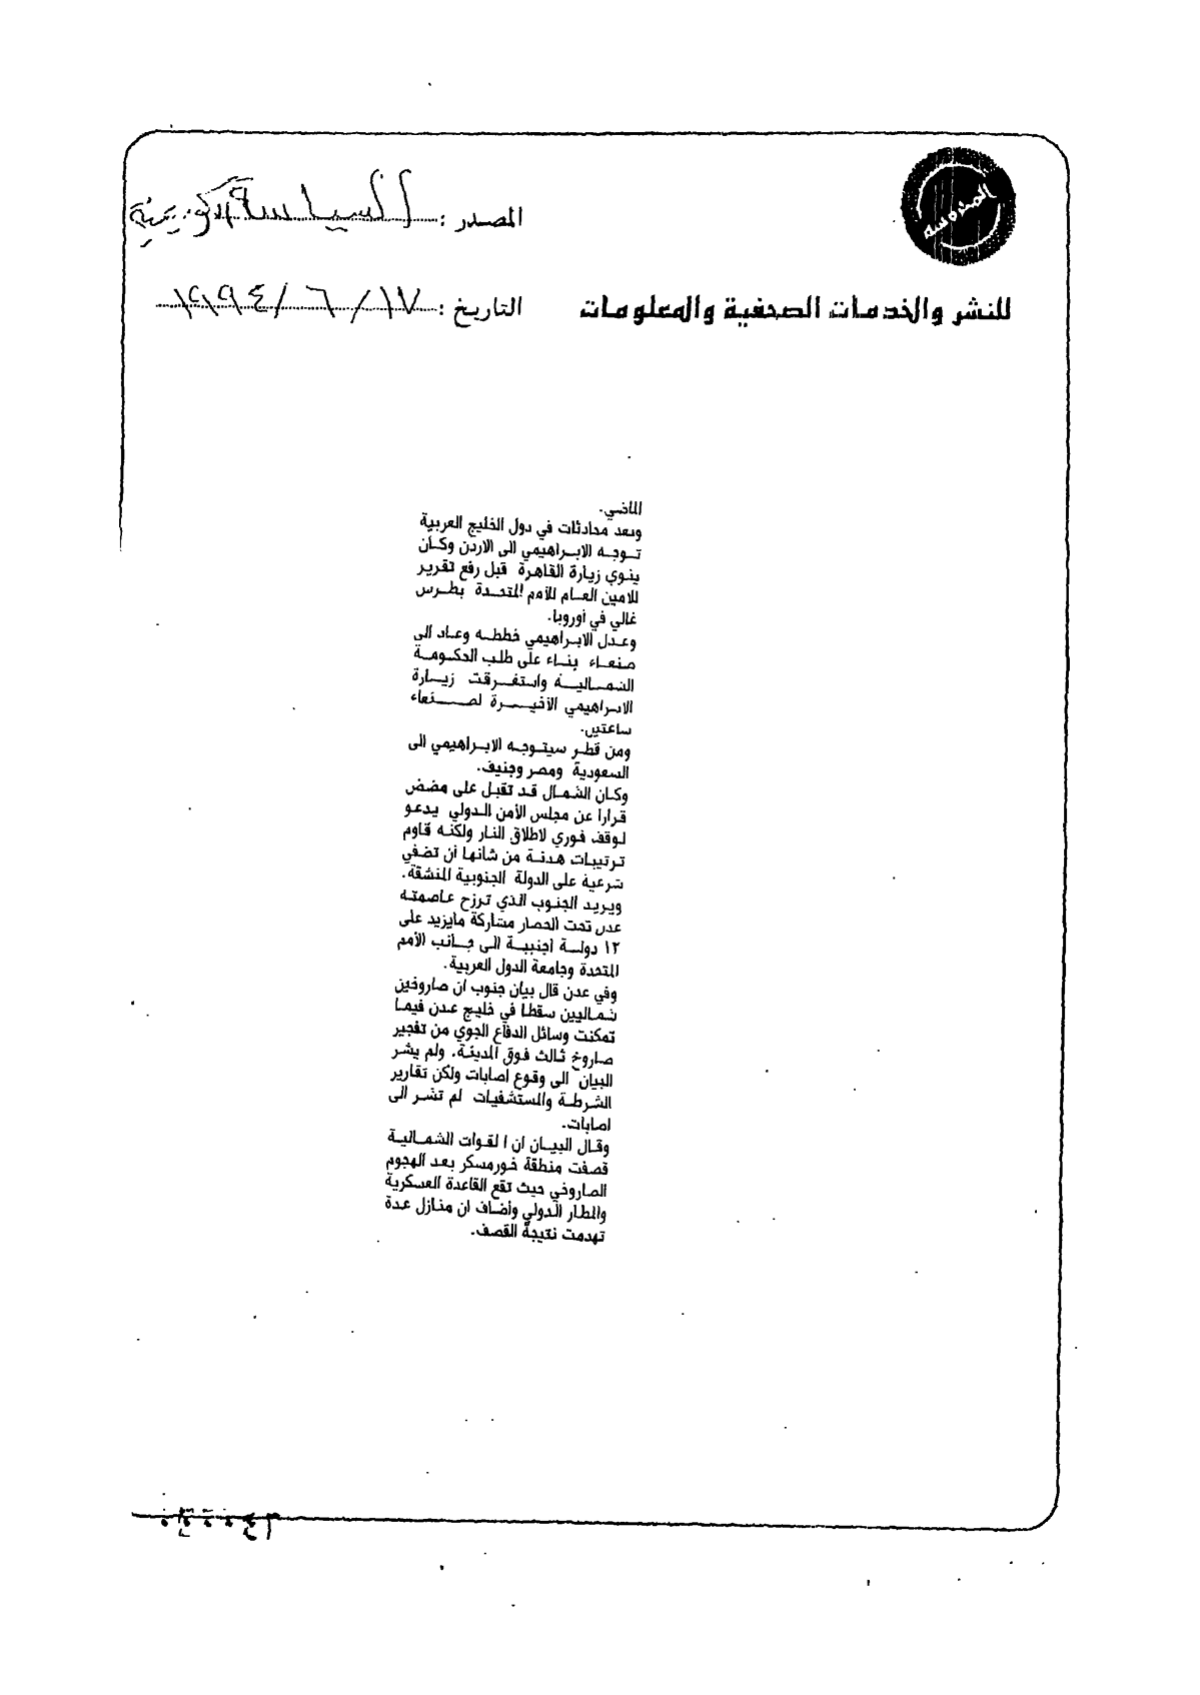 المصدر : السياسة الكويتية
التاريخ : ١٧ / ٦ / ١٩٩٤
للنشر والخدمات الصحفية والمعلومات
الماضي.
وبعد محادثات في دول الخليج العربية
توجه الابراهيمي الى الاردن وكان
ينوي زيارة القاهرة قبل رفع تقرير
للامين العام للأمم المتحدة بطرس
غالي في أوروبا.
وعدل الابراهيمي خططه وعاد الى
صنعاء بناء على طلب الحكومة
الشمالية واستغرقت زيارة
الابراهيمي الأخيرة لصنعاء
ساعتين.
ومن قطر سيتوجه الابراهيمي الى
السعودية ومصر وجنيف.
وكان الشمال قد تقبل على مضض
قرارا عن مجلس الأمن الدولي يدعو
لوقف فوري لاطلاق النار ولكنه قاوم
ترتيبات هدنة من شانها أن تضفي
شرعية على الدولة الجنوبية المنشقة.
ويريد الجنوب الذي ترزح عاصمته
عدن تحت الحصار مشاركة مايزيد على
١٢ دولة اجنبية الى جانب الأمم
المتحدة وجامعة الدول العربية.
وفي عدن قال بيان جنوب ان صاروخين
شماليين سقطا في خليج عدن فيما
تمكنت وسائل الدفاع الجوي من تفجير
صاروخ ثالث فوق المدينة. ولم يشر
البيان الى وقوع اصابات ولكن تقارير
الشرطة والمستشفيات لم تشر الى
اصابات.
وقال البيان ان ا لقوات الشمالية
قصفت منطقة خورمسكر بعد الهجوم
الصاروخي حيث تقع القاعدة العسكرية
والمطار الدولي وأضاف ان منازل عدة
تهدمت نتيجة القصف.